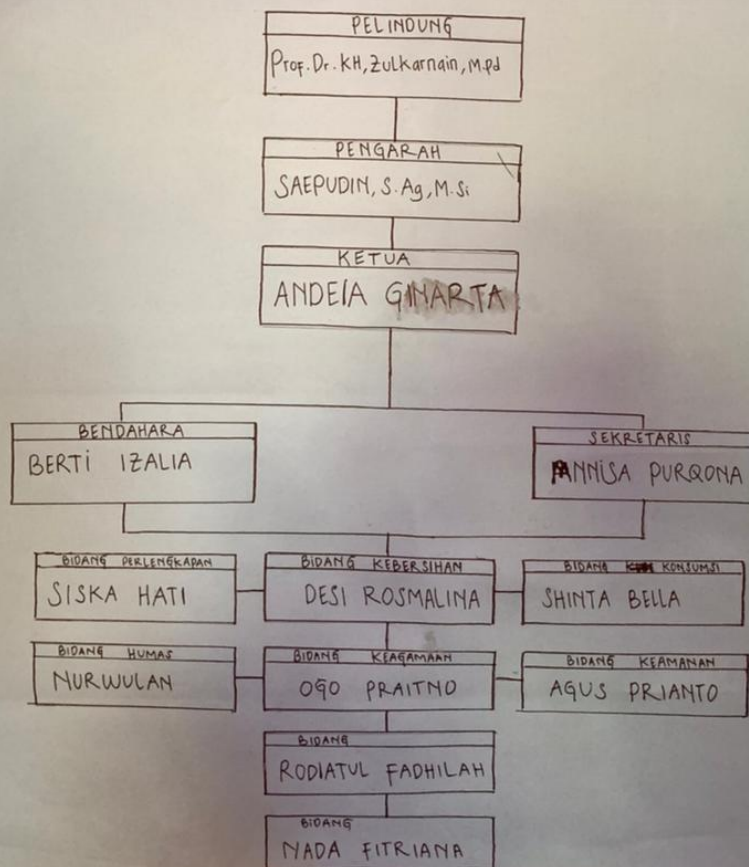 PELINDUNG
Prof. Dr. KH, Zulkarnain, M.pd
PENGARAH
SAEPUDIN, S.Ag, M.Si
KETUA
ANDEIA GINARTA
BENDAHARA
BERTI IZALIA
SEKRETARIS
ANNISA PURQONA
BIDANG PERLENGKAPAN
SISKA HATI
BIDANG KEBERSIHAN
DESI ROSMALINA
BIDANG KONSUMSI
SHINTA BELLA
BIDANG HUMAS
NURWULAN
BIDANG KEAGAMAAN
OGO PRAITNO
BIDANG KEAMANAN
AGUS PRIANTO
BIDANG
RODIATUL FADHILAH
BIDANG
NADA FITRIANA